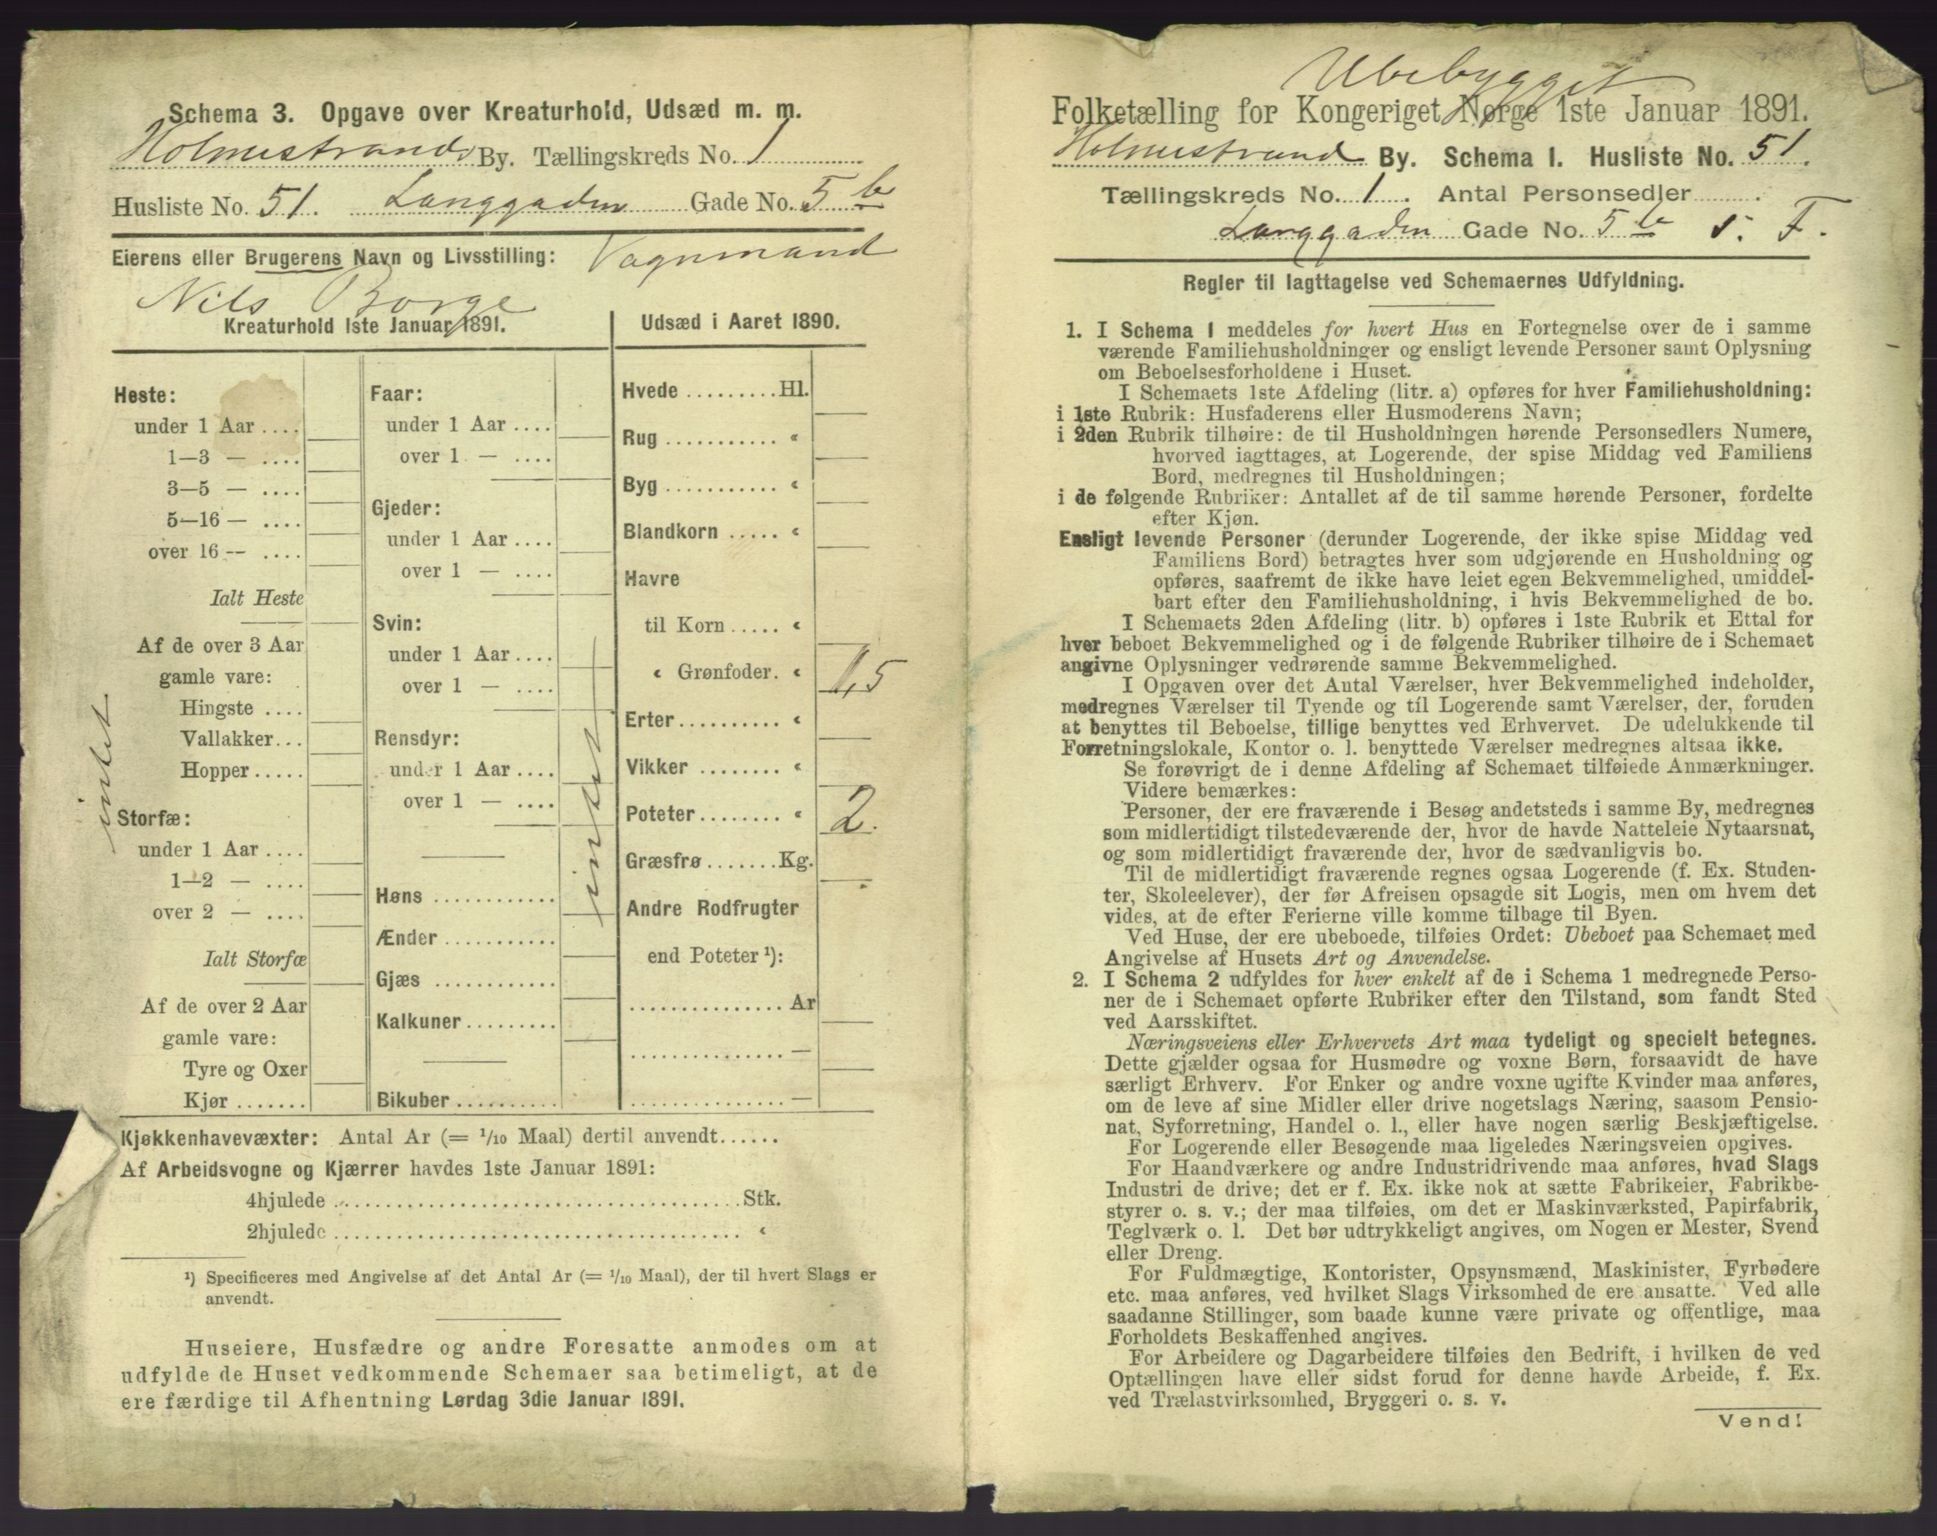 Schema 3. Opgave over Kreaturhold, Udsæd m. m.
Holmestrands By. Tællingskreds No. 1
Husliste No. 51. Langgaden Gade No. 5 b
Eierens eller Brugerens Navn og Livsstilling: Vognmand
Nils Borge
Kreaturhold 1ste Januar 1891.
Heste:
under 1 Aar ....
1—3 — ....
3—5 — ....
5—16 — ....
over 16 — ....
Ialt Heste
Af de over 3 Aar
gamle vare:
Hingste ....
Vallakker...
Hopper.....
intet
Storfæ:
under 1 Aar ....
1—2 — ....
over 2 — ....
Ialt Storfæ
Af de over 2 Aar
gamle vare:
Tyre og Oxer
Kjør .......
Faar:
under 1 Aar ....
over 1 — ....
Gjeder:
under 1 Aar ....
over 1 — ....
Svin:
under 1 Aar ....
over 1 — ....
Rensdyr:
under 1 Aar ....
over 1 — ....
Høns ............
Ænder ...........
Gjæs ............
Kalkuner.........
Bikuber..........
intet
Udsæd i Aaret 1890.
Hvede .........Hl.
Rug ........... «
Byg ........... «
Blandkorn ..... «
Havre
til Korn ..... «
« Grønfoder. « 1,5
Erter.......... «
Vikker ........ «
Poteter........ « 2.
Græsfrø .......Kg.
Andre Rodfrugter
end Poteter ¹):
...............Ar
............... —
............... —
Kjøkkenhavevæxter: Antal Ar (= 1/10 Maal) dertil anvendt......
Af Arbeidsvogne og Kjærrer havdes 1ste Januar 1891:
4hjulede ........................................Stk.
2hjulede ........................................ «
¹) Specificeres med Angivelse af det Antal Ar (= 1/10 Maal), der til hvert Slags er
anvendt.
Huseiere, Husfædre og andre Foresatte anmodes om at
udfylde de Huset vedkommende Schemaer saa betimeligt, at de
ere færdige til Afhentning Lørdag 3die Januar 1891.
Ubebygget
Folketælling for Kongeriget Norge 1ste Januar 1891.
Holmestrand By. Schema 1. Husliste No. 51.
Tællingskreds No. 1. Antal Personsedler .
Langgaden Gade No. 5 b s. F.
Regler til Iagttagelse ved Schemaernes Udfyldning.
1. I Schema 1 meddeles for hvert Hus en Fortegnelse over de i samme
værende Familiehusholdninger og ensligt levende Personer samt Oplysning
om Beboelsesforholdene i Huset.
I Schemaets 1ste Afdeling (litr. a) opføres for hver Familiehusholdning:
i 1ste Rubrik: Husfaderens eller Husmoderens Navn;
i 2den Rubrik tilhøire: de til Husholdningen hørende Personsedlers Numere,
hvorved iagttages, at Logerende, der spise Middag ved Familiens
Bord, medregnes til Husholdningen;
i de følgende Rubriker: Antallet af de til samme hørende Personer, fordelte
efter Kjøn.
Ensligt levende Personer (derunder Logerende, der ikke spise Middag ved
Familiens Bord) betragtes hver som udgjørende en Husholdning og
opføres, saafremt de ikke have leiet egen Bekvemmelighed, umiddel-
bart efter den Familiehusholdning, i hvis Bekvemmelighed de bo.
I Schemaets 2den Afdeling (litr. b) opføres i 1ste Rubrik et Ettal for
hver beboet Bekvemmelighed og i de følgende Rubriker tilhøire de i Schemaet
angivne Oplysninger vedrørende samme Bekvemmelighed.
I Opgaven over det Antal Værelser, hver Bekvemmelighed indeholder,
medregnes Værelser til Tyende og til Logerende samt Værelser, der, foruden
at benyttes til Beboelse, tillige benyttes ved Erhvervet. De udelukkende til
Forretningslokale, Kontor o. l. benyttede Værelser medregnes altsaa ikke.
Se forøvrigt de i denne Afdeling af Schemaet tilføiede Anmærkninger.
Videre bemærkes:
Personer, der ere fraværende i Besøg andetsteds i samme By, medregnes
som midlertidigt tilstedeværende der, hvor de havde Natteleie Nytaarsnat,
og som midlertidigt fraværende der, hvor de sædvanligvis bo.
Til de midlertidigt fraværende regnes ogsaa Logerende (f. Ex. Studen-
ter, Skoleelever), der før Afreisen opsagde sit Logis, men om hvem det
vides, at de efter Ferierne ville komme tilbage til Byen.
Ved Huse, der ere ubeboede, tilføies Ordet: Ubeboet paa Schemaet med
Angivelse af Husets Art og Anvendelse.
2. I Schema 2 udfyldes for hver enkelt af de i Schema 1 medregnede Perso-
ner de i Schemaet opførte Rubriker efter den Tilstand, som fandt Sted
ved Aarsskiftet.
Næringsveiens eller Erhvervets Art maa tydeligt og specielt betegnes.
Dette gjælder ogsaa for Husmødre og voxne Børn, forsaavidt de have
særligt Erhverv. For Enker og andre voxne ugifte Kvinder maa anføres,
om de leve af sine Midler eller drive nogetslags Næring, saasom Pensio-
nat, Syforretning, Handel o. l., eller have nogen særlig Beskjæftigelse.
For Logerende eller Besøgende maa ligeledes Næringsveien opgives.
For Haandværkere og andre Industridrivende maa anføres, hvad Slags
Industri de drive; det er f. Ex. ikke nok at sætte Fabrikeier, Fabrikbe-
styrer o. s. v.; der maa tilføies, om det er Maskinværksted, Papirfabrik,
Teglværk o. l. Det bør udtrykkeligt angives, om Nogen er Mester, Svend
eller Dreng.
For Fuldmægtige, Kontorister, Opsynsmænd, Maskinister, Fyrbødere
etc. maa anføres, ved hvilket Slags Virksomhed de ere ansatte. Ved alle
saadanne Stillinger, som baade kunne være private og offentlige, maa
Forholdets Beskaffenhed angives.
For Arbeidere og Dagarbeidere tilføies den Bedrift, i hvilken de ved
Optællingen have eller sidst forud for denne havde Arbeide, f. Ex.
ved Trælastvirksomhed, Bryggeri o. s. v.
Vend!